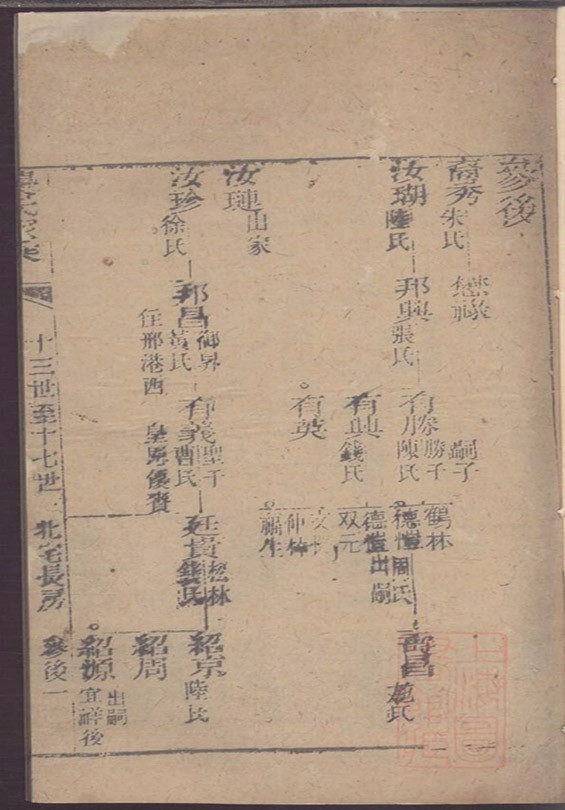 參後
裔秀 朱氏
懋
汝瑚 陸氏
邦興 張氏
有 勝千 嗣子
陳氏
鶴林
德愷 周氏
壽昌 范氏
有興 錢氏
德愷出嗣
双元
有英
仲林
汝璉 出家
汝珍 徐氏
邦昌 御昇
黃氏
住邢港西
有義 聖千
曹氏
皇恩優賚
廷貴 松林
錢氏
紹京 陸氏
紹周
紹源 出嗣
宜祥後
十三世至十七世
北宅長房
參後一